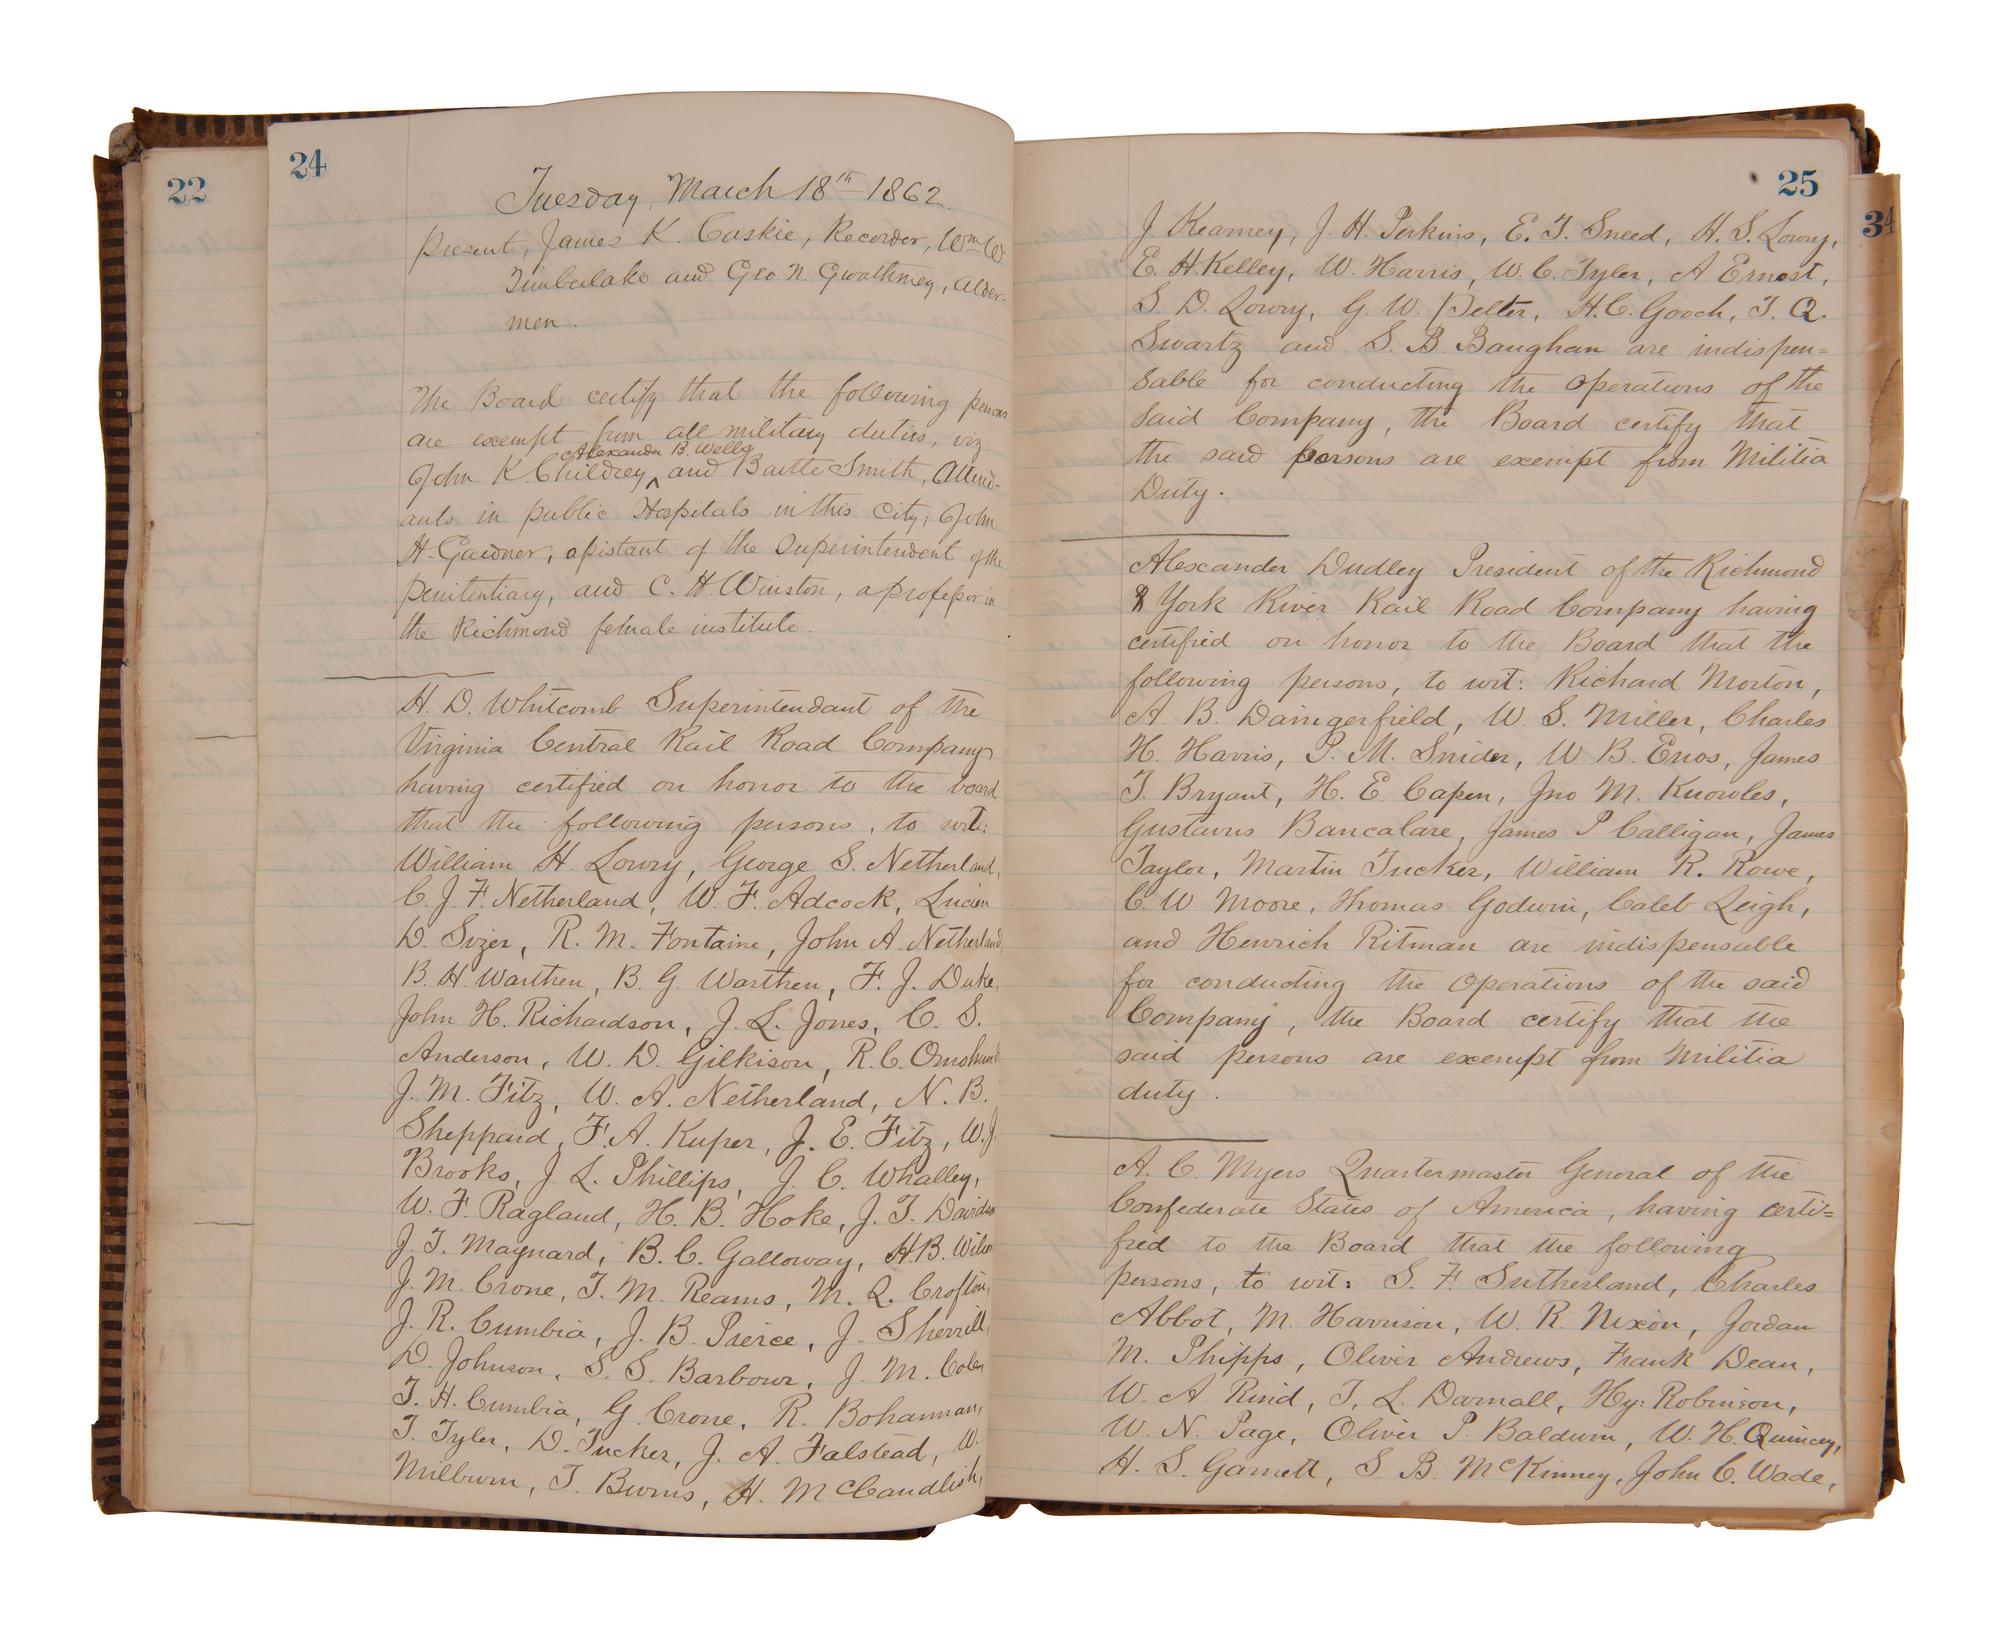 22
24
Tuesday, March 18th 1862.
Present, James K. Caskie, Recorder, Wm W
Timberlake and Geo. N. Gwathmey, Alder-
men.
The Board certify that the following persons
are exempt from all military duties, viz
Alexander B. Wells
John K. Childrey ^ and Bartte Smith, Attend-
ants in public Hospitals in this City, John
H. Gardner, assistant of the Superintendent of the
penitentiary, and C. H. Winston, a professor in
the Richmond female institute.
H. D. Whitcomb Superintendant of the
Virginia Central Rail Road Company
having certified on honor to the board
that the following persons, to wit:
William H. Lowry, George S. Netherland,
C. J. F. Netherland, W. F. Adcock, Lucien
D. Sizer, R. M. Fontaine, John A. Netherland
B. H. Warthen, B. G. Warthen, F. J. Duke,
John H. Richardson, J. L. Jones, C. S.
Anderson, W. D. Gilkison, R. C. Omohund
J. M. Fitz, W. A. Netherland, N. B.
Sheppard, F. A. Kuper, J. E. Fitz, W. J.
Brooks, J. L. Phillips, J. C. Whalley,
W. F. Ragland, H. B. Hoke, J. T. Davids
J. T. Maynard, B. C. Galloway, H B. Wilson
J. M. Crone, T. M. Reams, M. Q. Crofton,
J. R. Cumbia, J. B. Pierce, J. Sherrill,
D. Johnson, S. S. Barbour, J. M. Coley
T. H. Cumbia, G. Crone, R. Bohannan,
T. Tyler, D. Tucker, J. A. Falstead, W.
Milburn, T. Burns, H. McCandlish,
25
J. Kearney, J. H. Perkins, E. T. Sneed, H. S. Lowry,
E. H. Kelley, W. Harris, W. C. Tyler, A. Ernest,
S. D. Lowry, G. W. Pelter, H. C. Gooch, T. Q.
Swartz and S. B. Baughan are indispen=
sable for conducting the Operations of the
said Company, the Board certify that
the said persons are exempt from Militia
Duty.
Alexander Dudley President of the Richmond
& York River Rail Road Company having
certified on honor to the Board that the
following persons, to wit: Richard Morton,
A. B. Daingerfield, W. S. Miller, Charles
H. Harris, P. M. Snider, W. B. Enos, James
T. Bryant, H. E. Capen, Jno M. Knowles,
Gustavus Bancalare, James P. Calligan, James
Taylor, Martin Tucker, William R. Rowe,
C. W. Moore, Thomas Godwin, Caleb Leigh,
and Henrich Ritman are indispensable
for conducting the Operations of the said
Company, the Board certify that the
said persons are exempt from Militia
duty.
A. C. Myers Quartermaster General of the
Confederate States of America, having certi=
fied to the Board that the following
persons, to wit: S. F. Sutherland, Charles
Abbot, M. Harrison, W. R. Nixon, Jordan
M. Phipps, Oliver Andrews, Frank Dean,
W. A. Reid, T. L. Darnall, Hy: Robinson,
W. N. Page, Oliver P. Baldwin, W. H. Quincey,
H. S. Garnett, S. B. McKinney, John C. Wade,
34